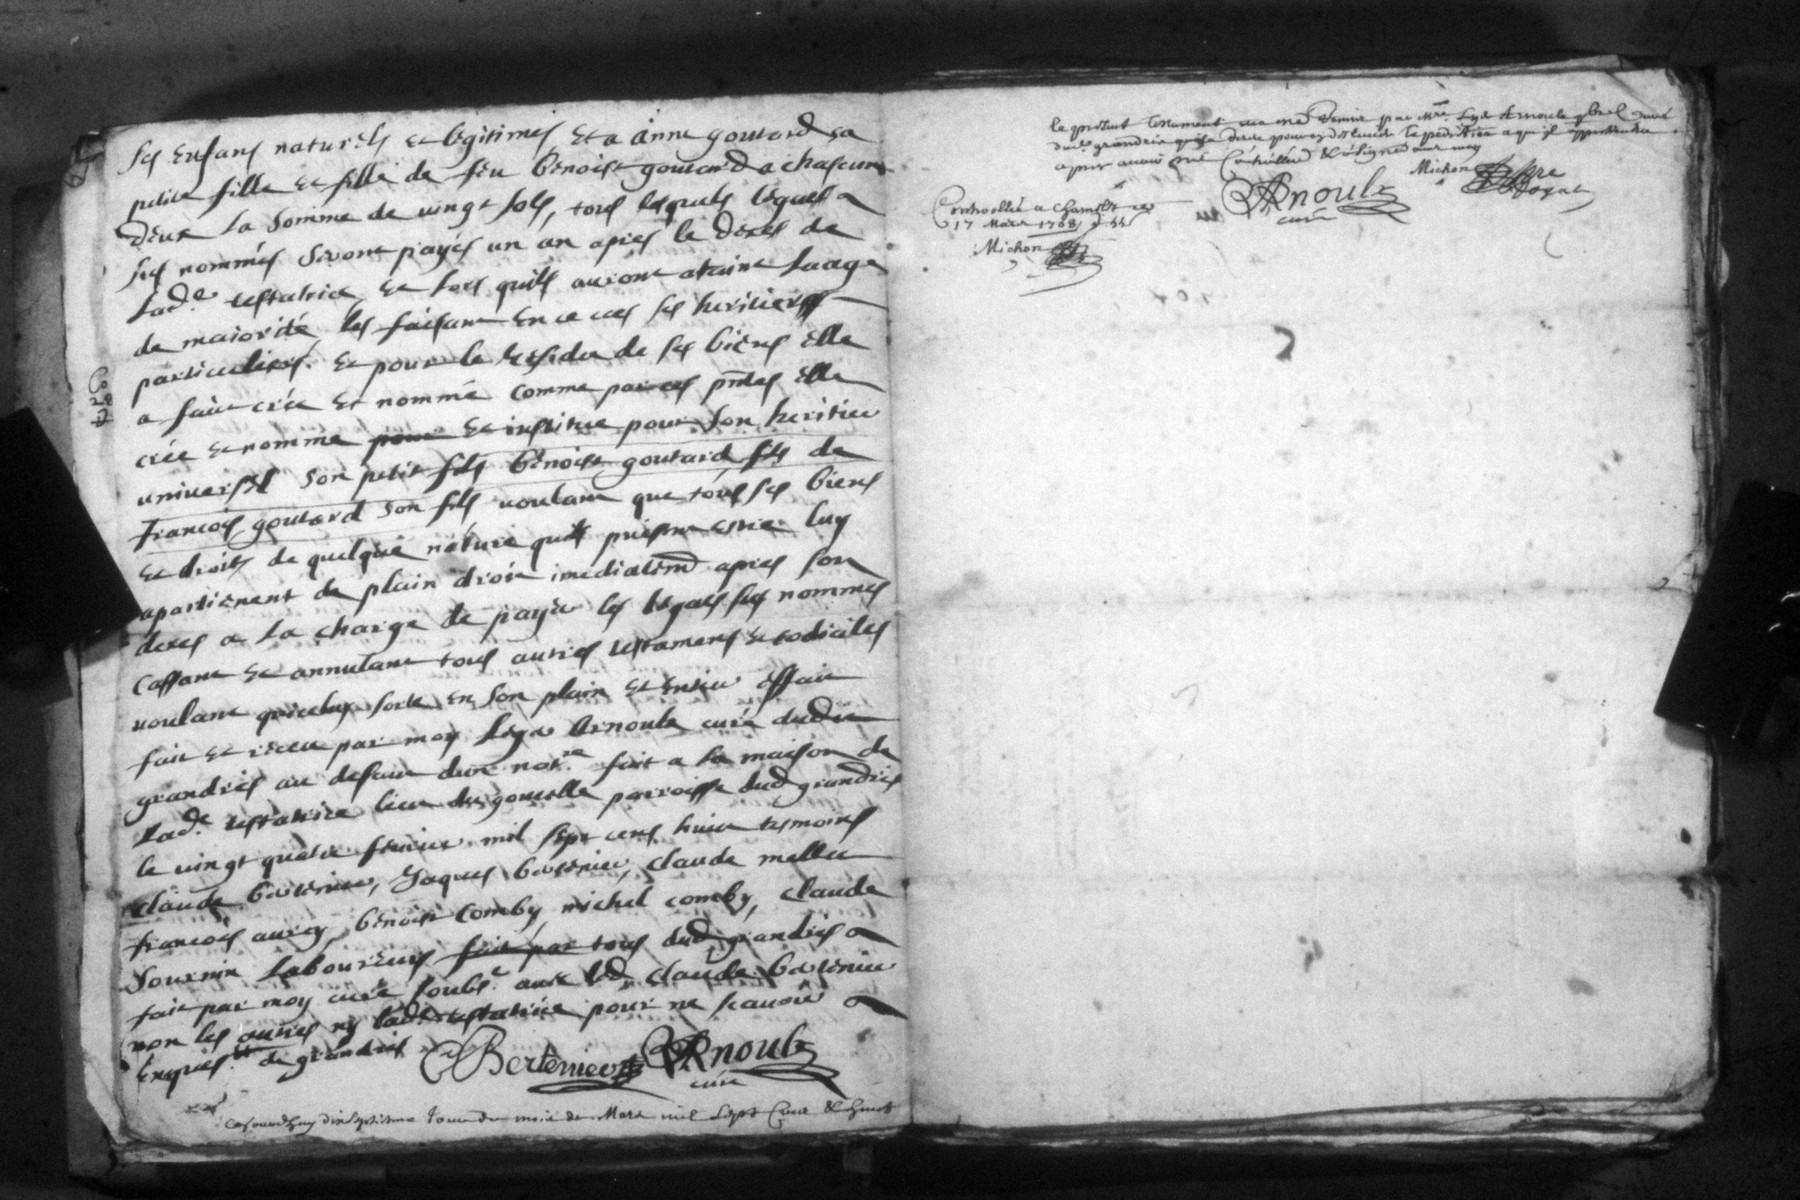 ses enfans naturels et legitimes, et a anne goutard sa
petite fille et fille de feu benoist goutard a chascun
deux la somme de vingt sols, tous lesquels legues a
ses nommés seront payés un an apres le deces de
lad.e testatrice, et lors quils auront ataint laage
de maiorité les faisant en ce ces ses heritiers
particuliers. et pour le residu de ses biens elle
a fait crée et nommé comme par ces pntes elle
crée et nomme pour et institue pour son heritier
universel son petit fils benoist goutard fils de
francois goutard son fils voulant que tous ses biens
et droits de quelque nature quils puissent estre luy
apartienent de plain droit imediatemt apres son
deces a la charge de payer les legats ses nommes
cassant et annulant tous autres testamens et codiciles
voulant quiceluy sorte en son plain et entier effait
fait et receu par moy leger Arnoult curé dudit
grandris au deffaut dun not.re fait a la maison de
lad.e testatrice lieu de goutelle parroisse dud grandris
le vingt quatre fevrier mil sept cens huit tesmoins
claude bertenier, Jaques bertenier, claude mellet
francois auray, benoist comby, michel comby, claude
sournin laboureurs fait par tous dud grandris
fait par moy curé soubs.e avec led claude bertenier
non les autres ny lad.e testatrice pour ne scavoir
enquis. de grandris
Bertenier Arnoult
curé
cejourdhuy dix septieme jour du mois de Mars mil sept cent & huit
le present testament a esté remis par Mre Leger Arnoult curé
dud grandris pour expedier a qui il appartiendra
apres avoir esté controllé & a signé avec moy
Arnoult
curé
Michon
Controllé a Chamelet ce
17 Mars 1708
Michon